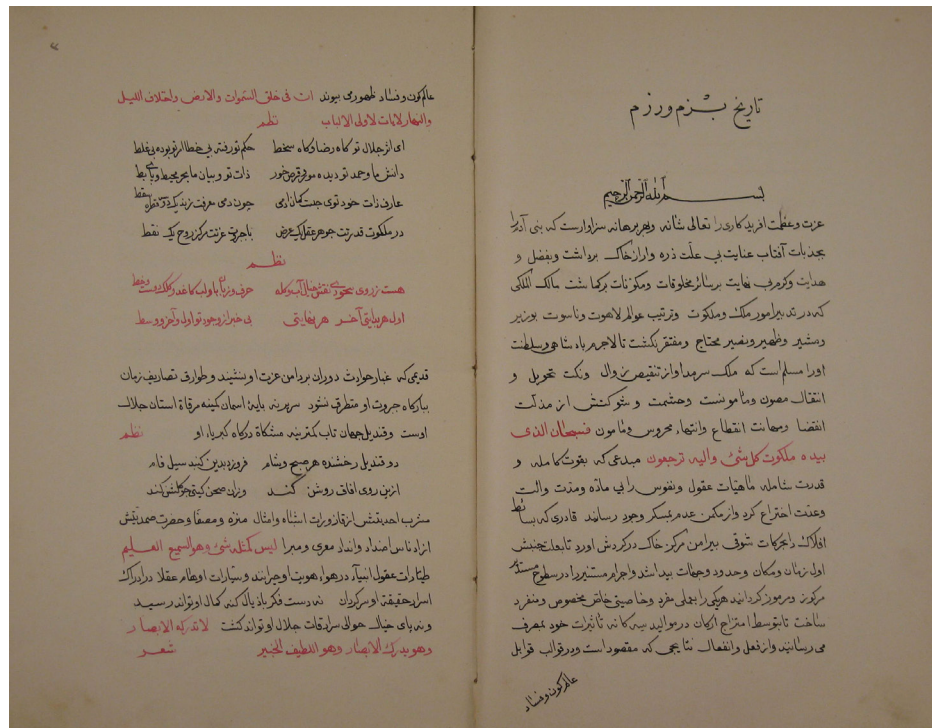 تاریخ بزم و رزم
بسم الله الرحمن الرحیم
عزت و عظمت آفریدکاری را تعالی شانه و بهر برهانه سزاوارست که بنی آدم را
بجذبات آفتاب عنایت بی علت ذره وار از خاک برداشت و بفضل و
هدایت و کرم بی نهایت بر سائر مخلوقات و مکونات برکماشت مالک الملکی
که در تدبیر امور ملک و ملکوت و ترتیب عوالم لاهوت و ناسوت بوزیر
و مشیر و ظهیر و نصیر محتاج و مفتقر نکشت تا لاجرم پادشاهی و سلطنت
اورا مسلم است که ملک سرمد او از تنقیص زوال و نکت تحویل و
انتقال مصون و مأمونست و حشمت و شوکتش از مذلت
انقضا و مهانت انقطاع و انتهاء محروس و مأمون فسبحان الذی
بیده ملکوت کل شیٔ والیه ترجعون مبدعی که بقوت کامله و
قدرت شامله ماهیات عقول و نفوس را بی ماده و مدت و آلت
و عدت اختراع کرد و از مکمن عدم بمعسکر وجود رسانید قادری که بسائط
افلاک را بحرکات شوقی بیرامن مرکز خاک در کردش آورد تا بعلت جنبش
اول زمان و مکان و حدود و جهات پیدا شد و اجرام مستنیر را در سطوح مستدیر
مرکوز و مرموز کردانید هریکی را بعملی مفرد و خاصیتی خاص مخصوص و منفرد
ساخت تا بتوسط امتزاج ارکان در موالید سه کانه تأثیرات خود بمصرف
می رسانند و از فعل و انفعال نتایجی که مقصود است و در قوالب قوابل
عالم کون و فساد
عالم کون و فساد بظهور می پیوند ان فی خلق السموات والارض واختلاف اللیل
والنهار لآیات لاولی الالباب نظم
ای اثر جلال تو کاه رضا و کاه سخط حکم تو رفته بی خطا امر تو بوده بی غلط
دانش ما و حمد تو دیده مور و قرص خور ذات تو و بیان ما بحر محیط و پای بط
عارف ذات خود توی جنت کمان آدمی چون دمی معرفت زند یک قطره سقط
در ملکوت قدرتت جوهر عقل یک عرض با جبروت عزتت مرکز روح یک نقط
نظم
هست ز روی حرف و زبان با و لب کاغذ و کلک و دست و خط
اول هر بدایتی آخر هر نهایتی بی خبر از وجود تو اول و آخر و وسط
قدیمی که غبار حوادث دوران بر دامن عزت او ننشیند و طوارق تصاریف زمان
ببارکاه جبروت او متطرق نشود سریر نه پایهٔ آسمان کمینه مرقاة آستان جلال
اوست و قندیل جهان تاب کمترینه مشکاة درکاه کبریاء او نظم
دو قندیل رخشنده هر صبح و شام فروزد بدین کنبد سیل فام
ازین روی آفاق روشن کند وزان صحن کیتی چو کلشن کند
مشرب احدیتش از قاذورات اشباه و امثال منزه و مصفا و حضرت صمدیتش
از ادناس اضداد و انداد معری و مبرا لیس کمثله شیٔ وهو السمیع العلیم
طیارات عقول انبیآء در هواء هویت او حیرانند و سیارات اوهام عقلا در ادراک
اسرار حقیقت او سرکردان نه دست فکر بادیال کنه کمال او تواند رسید
و نه پای خیال حوالی سرادقات جلال او تواند کشت لا تدرکه الابصار
وهو یدرک الابصار وهو اللطیف الخبیر شعر